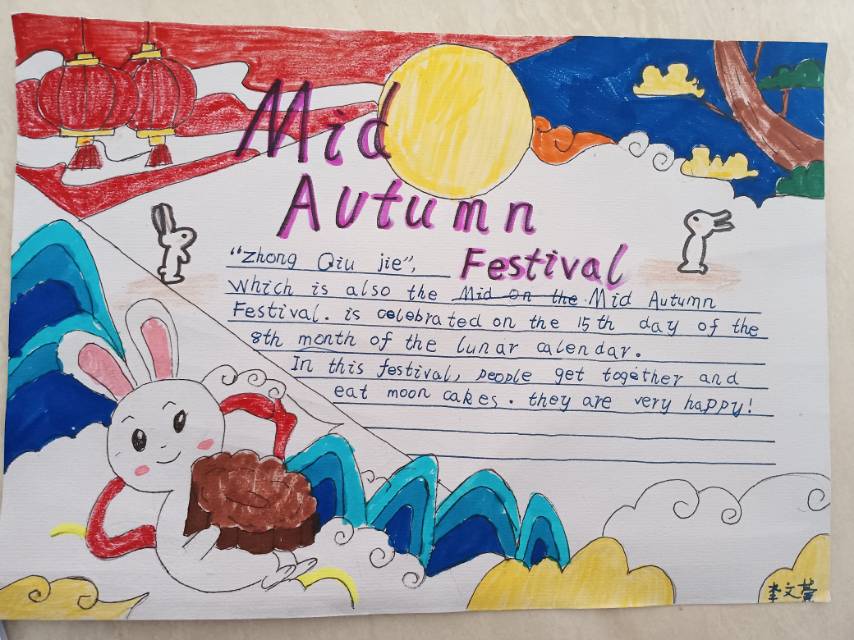 Mid
Autumn
Festival
"Zhong Qiu jie",
Which is also the Mid on the Mid Autumn
Festival. is celebrated on the 15th day of the
8th month of the lunar calendar.
In this festival, people get together and
eat moon cakes. they are very happy!
李文